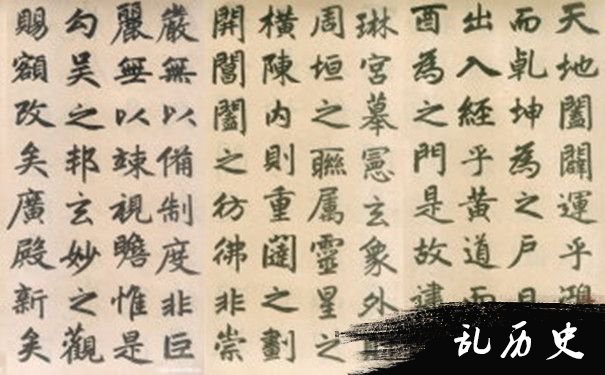 天地闔闢運乎鴻
而乹坤為之戶日
出入經乎黃道而
酉為之門是故建
琳宮摹憲玄象外
周垣之聯属靈星之
橫陳内則重闥之劃
開閶闔之彷彿非崇
嚴無以備制度非巨
麗無以竦視瞻惟是
勾吳之邦玄妙之觀
賜額改矣廣殿新矣
乱历史